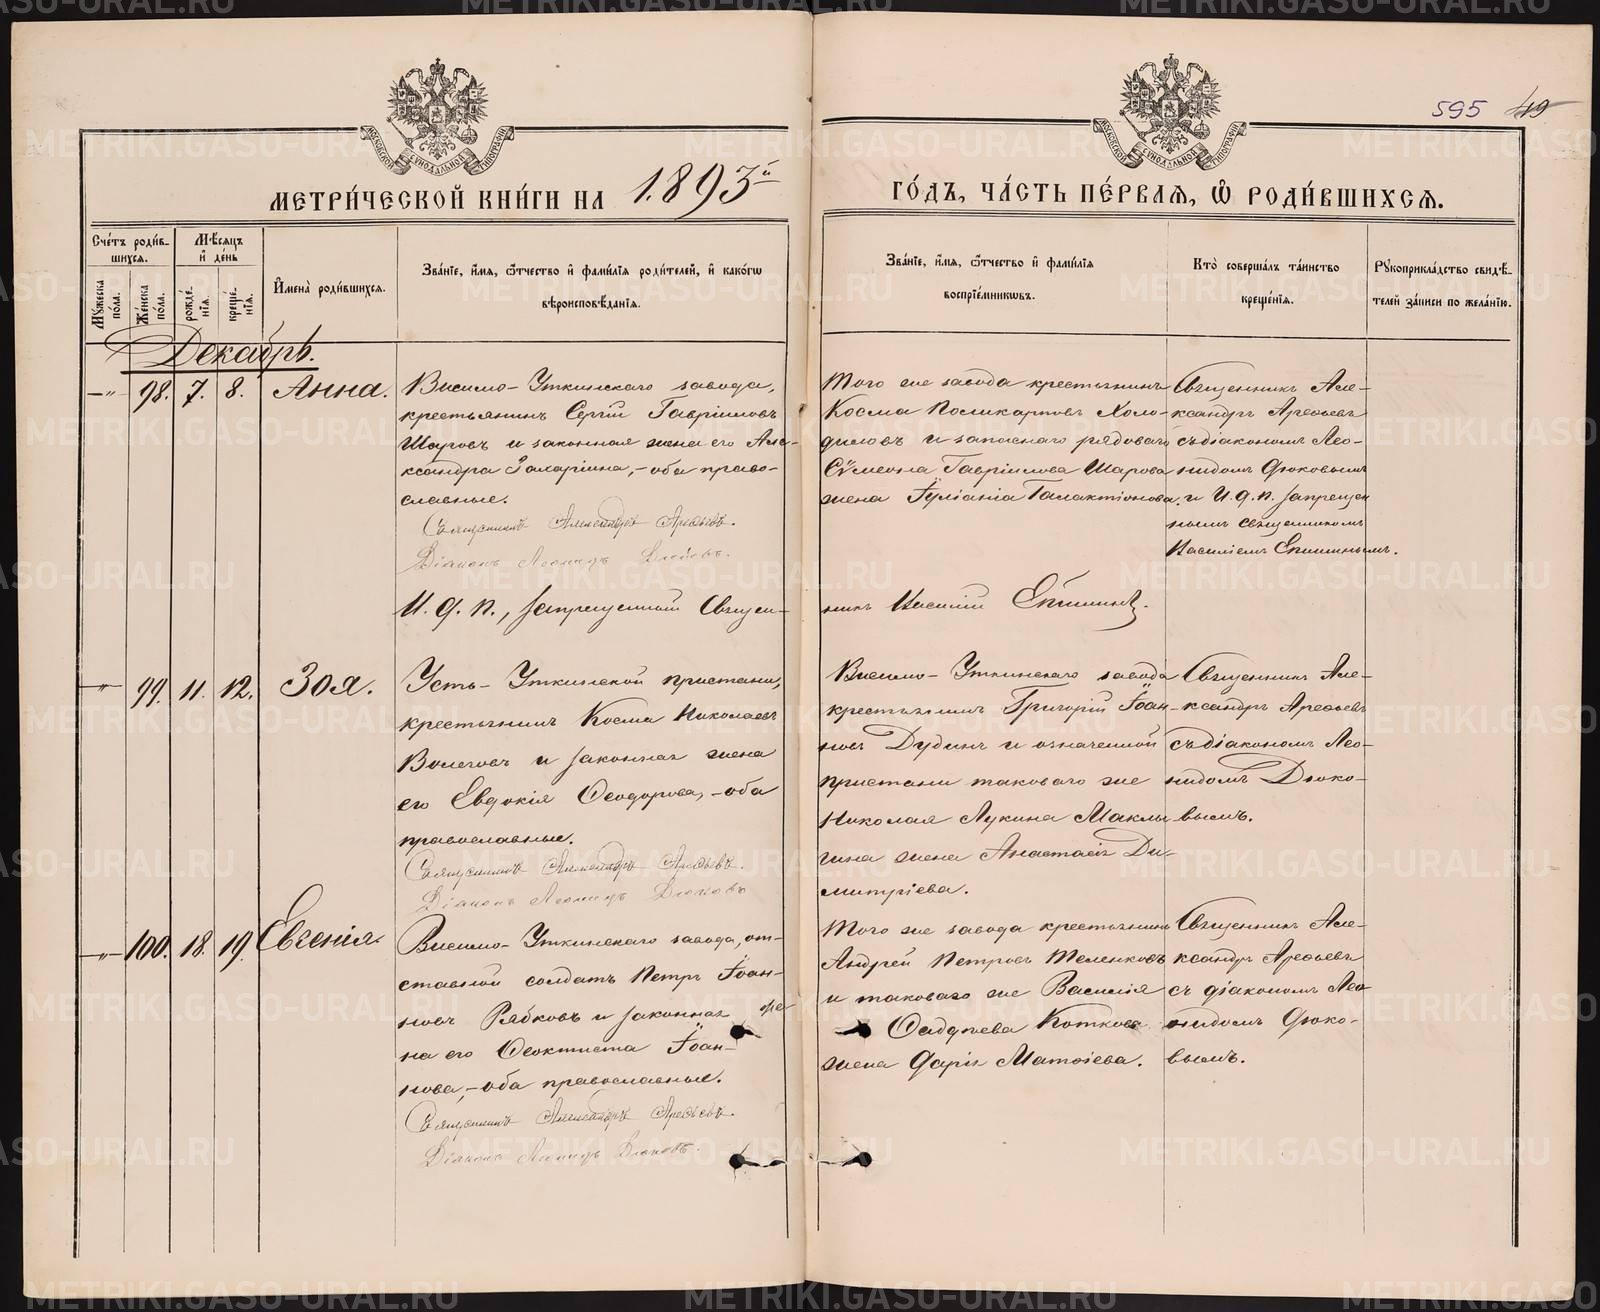 595 49
МОСКОВСКОЙ СѴНОДАЛЬНОЙ ТИПОГРАФІИ
МОСКОВСКОЙ СѴНОДАЛЬНОЙ ТИПОГРАФІИ
МЕТРИ́ЧЕСКОЙ КНИ́ГИ НА 1893й
ГО́ДЪ, ЧА́СТЬ ПЕ́РВАѦ, Ѡ҆ РОДИ́ВШИХСѦ.
Счетъ роди́в-
шихсѧ.
Му́жеска по́ла.
Же́нска по́ла.
Мѣ́сѧцъ и҆ де́нь
рожде́нїѧ.
креще́нїѧ.
И҆мена̀ роди́вшихсѧ.
Зва́нїе, и҆́мѧ, ѻ҆́тчество и҆ фами́лїѧ роди́телей, и҆ како́гѡ
вѣроисповѣ́данїѧ.
Зва́нїе, и҆́мѧ, ѻ҆́тчество и҆ фами́лїѧ
воспрїе́мникѡвъ.
Кто̀ соверша́лъ та́инство
креще́нїѧ.
Рꙋкоприкла́дство свидѣ́-
телей за́писи по жела́нїю.
Декабрь.
—„— 98. 7. 8. Анна.
Висимо-Уткинскаго завода,
крестьянинъ Сергій Гавріиловъ
Шаровъ и законная жена его Але-
ксандра Захаріина,-оба право-
славные.
Священникъ Александръ Арефьевъ.
Діаконъ Леонидъ Дюковъ.
И. д. п., запрещенный Священ-
Того же завода крестьянинъ
Косма Поликарповъ Холо-
диловъ и запаснаго рядоваго
Сѵмеона Гавріилова Шарова
жена Іуліанія Галактіонова.
никъ Василій Епишинъ.
Священникъ Але-
ксандръ Арефьевъ
съ діакономъ Лео-
нидомъ Дюковымъ
и И. д. п. запрещен
нымъ священникомъ
Василіемъ Епишинымъ.
—„— 99. 11. 12. Зоя.
Усть-Уткинской пристани,
крестьянинъ Косма Николаевъ
Волеговъ и законная жена
его Евдокія Ѳеодорова,-оба
православные.
Священникъ Александръ Арефьевъ.
Діаконъ Леонидъ Дюковъ
Висимо-Уткинскаго завода
крестьянинъ Григорій Іоан-
новъ Дудинъ и означенной
пристани таковаго же
Николая Лукина Маклы
гина жена Анастасія Ди-
митріева.
Священникъ Але-
ксандръ Арефьевъ
съ діакономъ Лео-
нидомъ Дюко-
вымъ.
—„— 100. 18. 19. Евгенія.
Висимо-Уткинскаго завода, от-
ставной солдатъ Петръ Іоан-
новъ Рябковъ и законная же
на его Ѳеоктиста Іоан-
нова,-оба православные.
Священникъ Александръ Арефьевъ.
Діаконъ Леонидъ Дюковъ.
Того же завода крестьянинъ
Андрей Петровъ Теленковъ
и таковаго же Василія
Коткова
жена Дарія Матѳіева.
Священникъ Але-
ксандръ Арефьевъ
съ діакономъ Лео
нидомъ Дюко-
вымъ.
METRIKI.GASO-URAL.RU